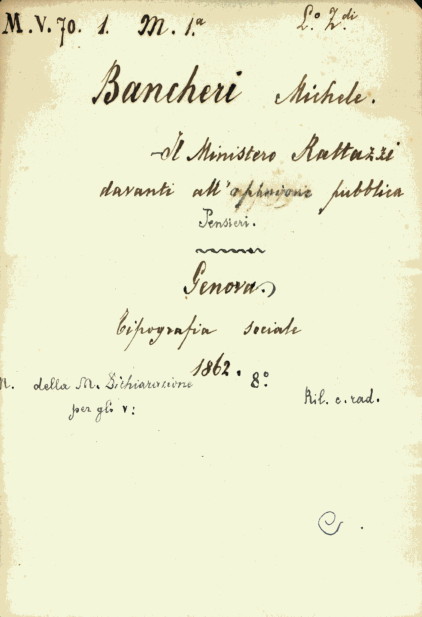 M.V.70. 1. M. 1.a L.o Z.di
Bancheri Michele.
Il Ministero Rattazzi
davanti all'opinione pubblica
Pensieri.
Genova.
Tipografia sociale
1862. 8.o
N. della M. Dichiarazione Ril. c. rad.
per gli v: